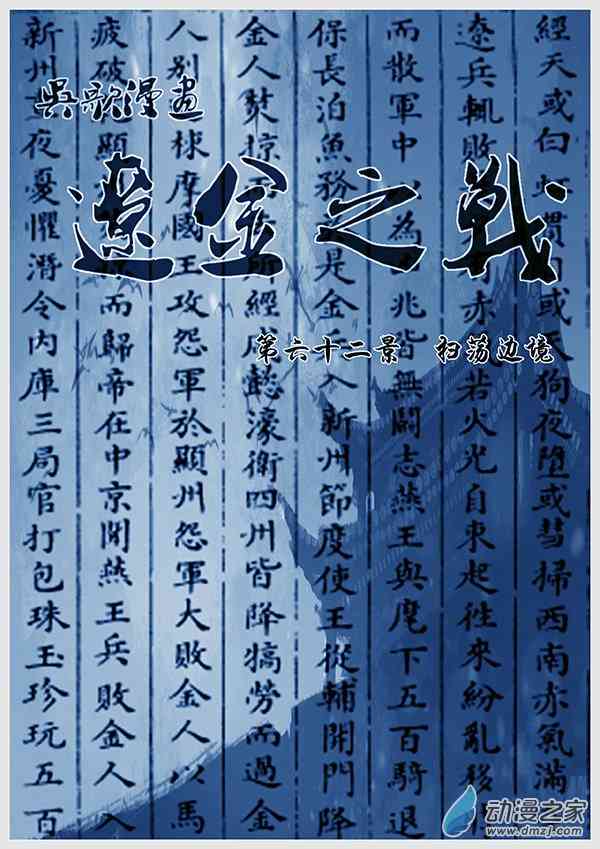 吳歌漫畫
遼金之戰
第六十二景 扫荡边境
經天或白虹貫日或天狗夜墮或彗掃西南赤氣滿
遼兵輒敗 赤 若火光自東起徃來紛亂移
而散軍中 為 兆皆無鬬志燕王與麾下五百騎退
保長泊魚務 是金 入新州節度使王從輔開門降
金人焚掠 所經成懿濠衛四州皆降犒勞而過金
人別 棣摩國王攻怨軍於顯州怨軍大敗金人以馬
疲破顯 而歸帝在中京聞燕王兵敗金人入
新州 夜憂懼潛令內庫三局官打包珠玉珍玩五百
动漫之家
www.dmzj.com